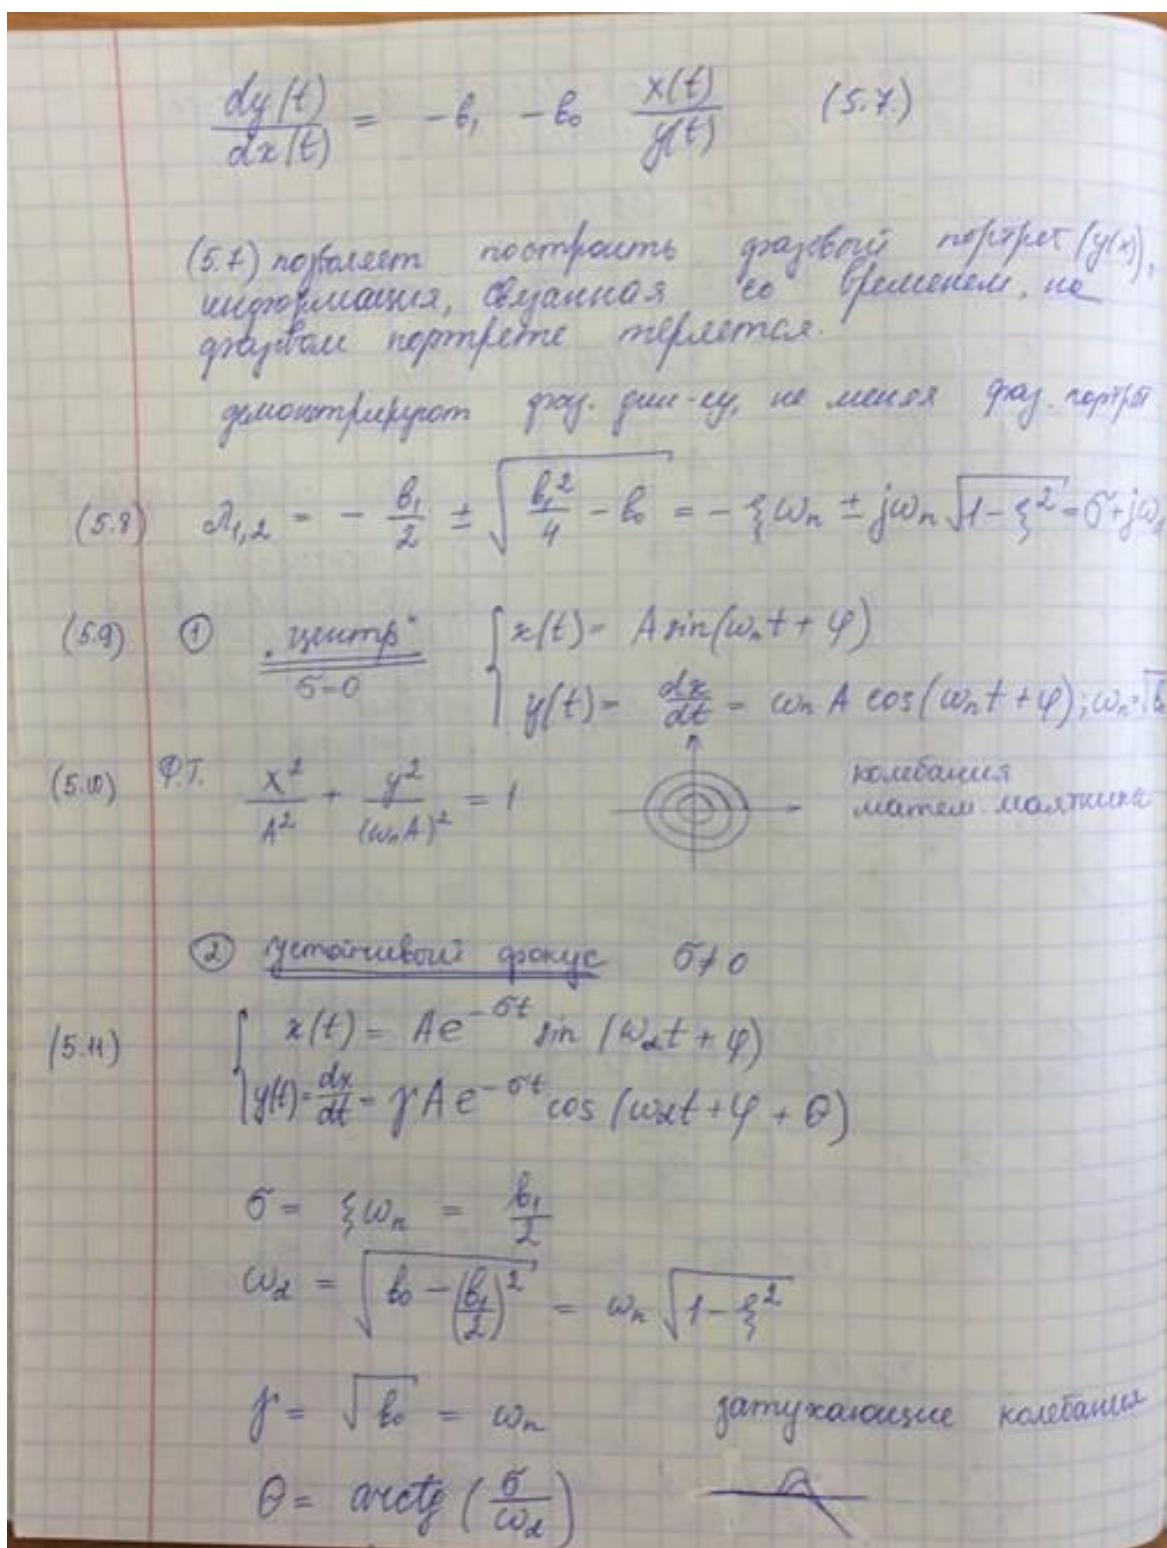 dy(t)/dx(t) = -b₁ -b₀ x(t)/y(t) (5.7.)
(5.7) позволяет построить фазовый портрет (y(x)),
информация, связанная со временем, на
фазовом портрете теряется.
демонстрируют фаз. дин-ку, не меняя фаз. портрет
(5.8) λ₁,₂ = - b₁/2 ± √(b₁²/4 - b₀) = - ξωₙ ± jωₙ √(1-ξ²) = σ + jω
(5.9) ① „центр“ σ=0 { x(t) = A sin(ωₙt + φ)
y(t) = dx/dt = ωₙ A cos(ωₙt + φ); ωₙ = √b
(5.10) Ф.Т. x²/A² + y²/(ωₙA)² = 1 колебания
матем. маятника
② устойчивый фокус σ≠0
(5.11) { x(t) = Ae^(-σt) sin (ω_d t + φ)
y(t) = dx/dt = γAe^(-σt) cos (ω_d t + φ + θ)
σ = ξωₙ = b₁/2
ω_d = √(b₀ - (b₁/2)²) = ωₙ √(1-ξ²)
γ = √b₀ = ωₙ затухающие колебания
θ = arctg (σ/ω_d)